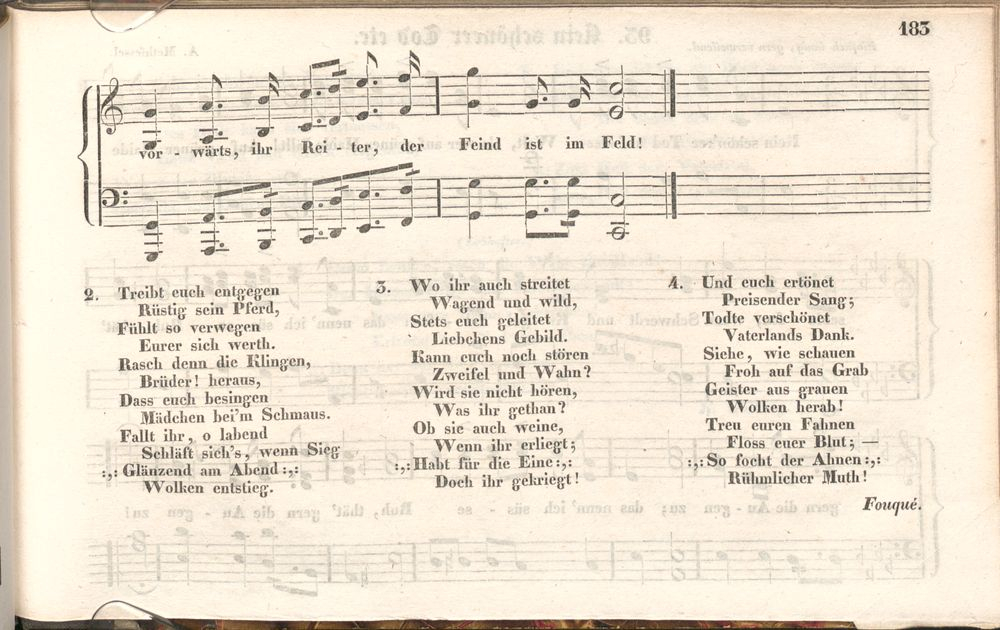 183
vor - wärts, ihr Rei - ter, der Feind ist im Feld!
2. Treibt euch entgegen
Rüstig sein Pferd,
Fühlt so verwegen
Eurer sich werth.
Rasch denn die Klingen,
Brüder! heraus,
Dass euch besingen
Mädchen bei'm Schmaus.
Fallt ihr, o labend
Schläft sich's, wenn Sieg
:,: Glänzend am Abend :,:
Wolken entstieg.
3. Wo ihr auch streitet
Wagend und wild,
Stets euch geleitet
Liebchens Gebild.
Kann euch noch stören
Zweifel und Wahn?
Wird sie nicht hören,
Was ihr gethan?
Ob sie auch weine,
Wenn ihr erliegt;
:,: Habt für die Eine :,:
Doch ihr gekriegt!
4. Und euch ertönet
Preisender Sang;
Todte verschönet
Vaterlands Dank.
Siehe, wie schauen
Froh auf das Grab
Geister aus grauen
Wolken herab!
Treu euren Fahnen
Floss euer Blut; —
:,: So focht der Ahnen :,:
Rühmlicher Muth!
Fouqué.